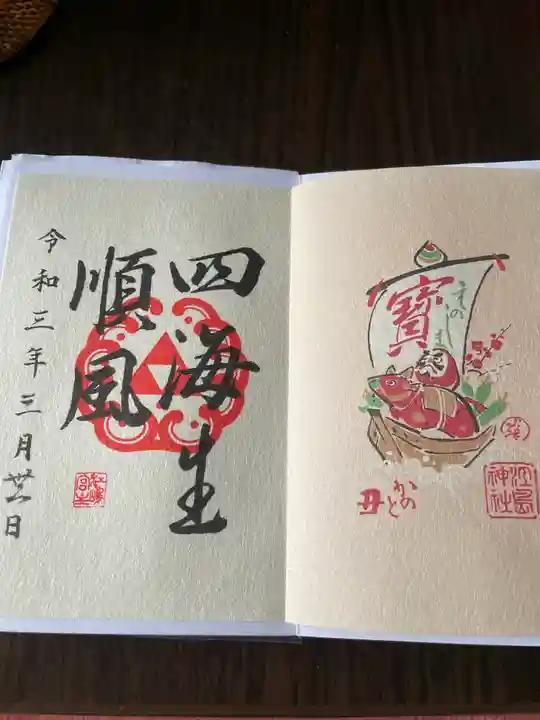 四海生
順風
令和三年三月 日
寶
えのしま
かのと
丑
江島
神社